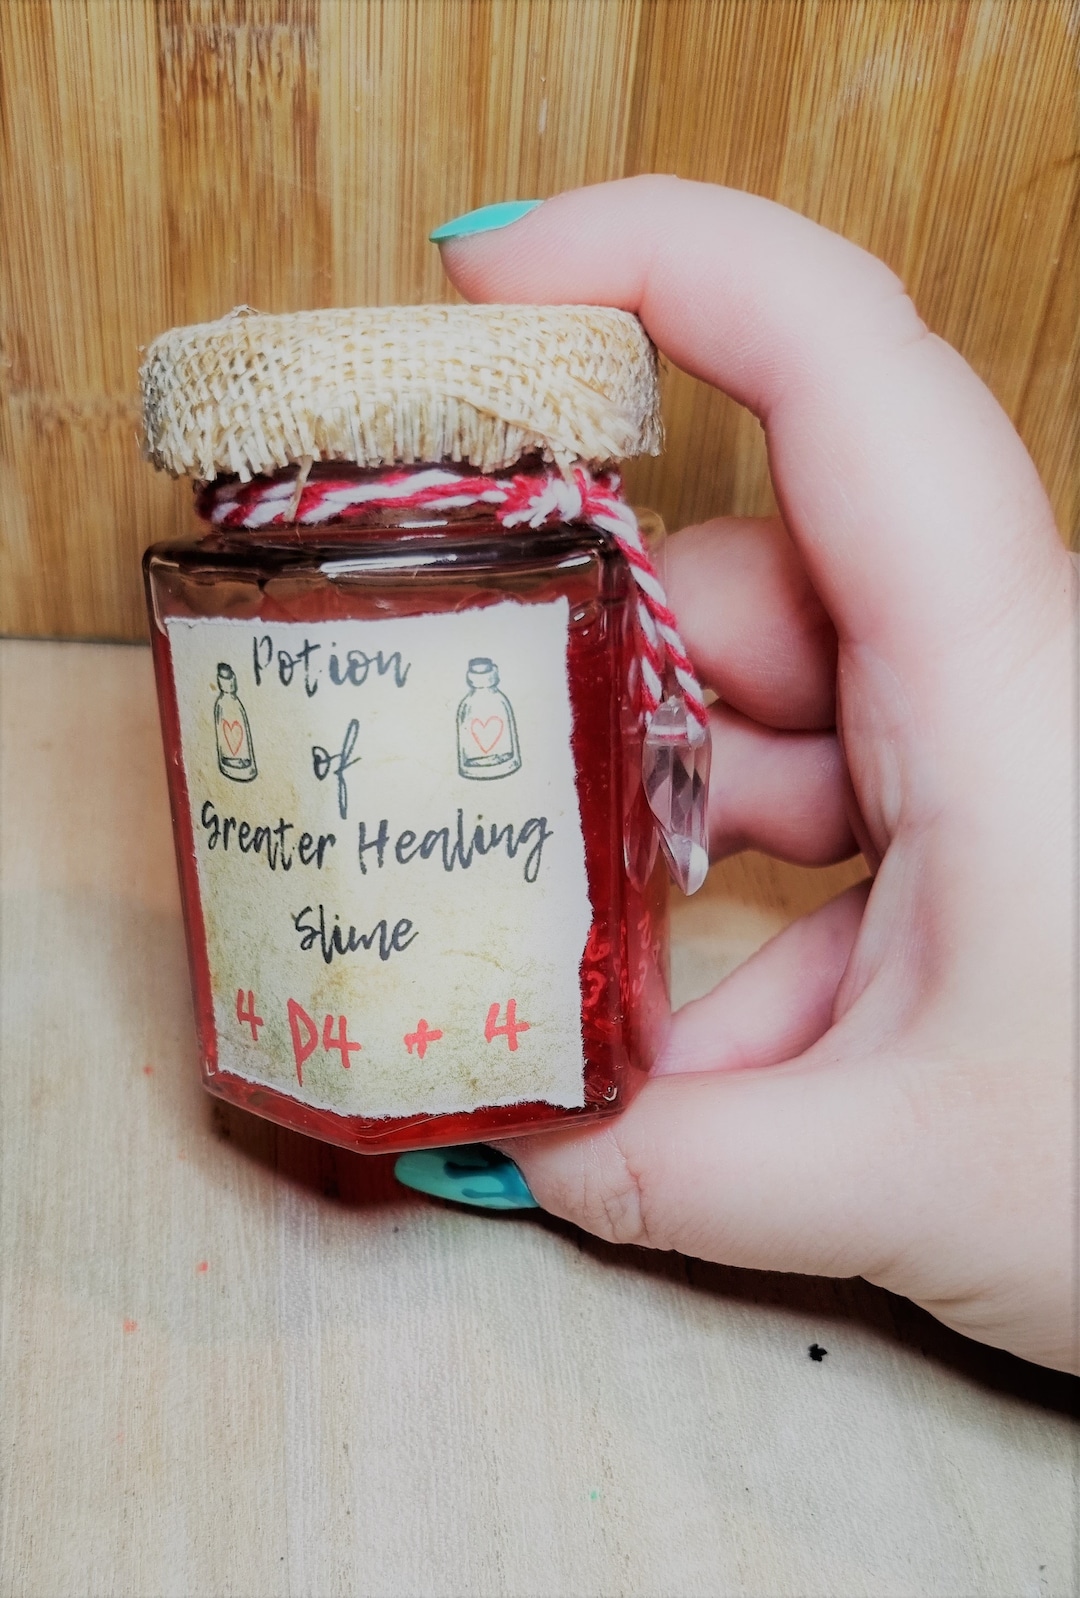 Potion
of
Greater Healing
Slime
4 D4 + 4